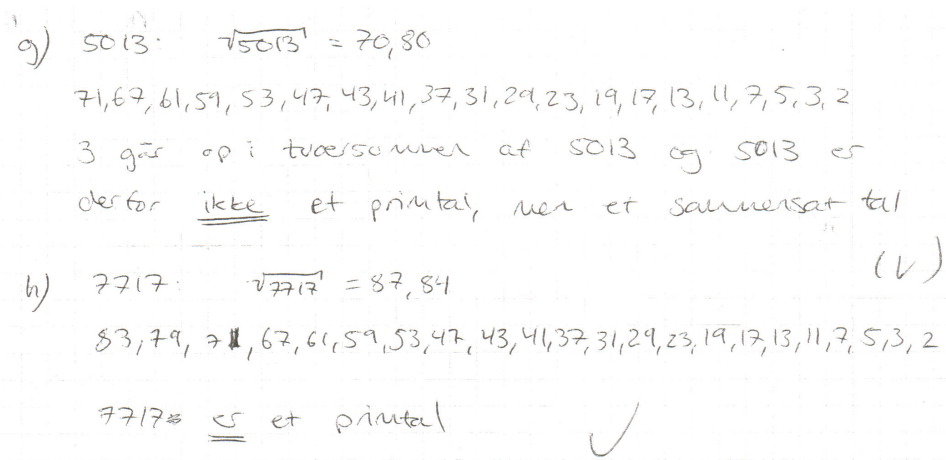 g) 5013: √5013 = 70,80
71,67,61,59,53,47,43,41,37,31,29,23,19,17,13,11,7,5,3,2
3 går op i tværsummen af 5013 og 5013 er
derfor ikke et primtal, men et sammensat tal
(V)
h) 7717: √7717 = 87,84
83,79,71,67,61,59,53,47,43,41,37,31,29,23,19,17,13,11,7,5,3,2
7717 er et primtal